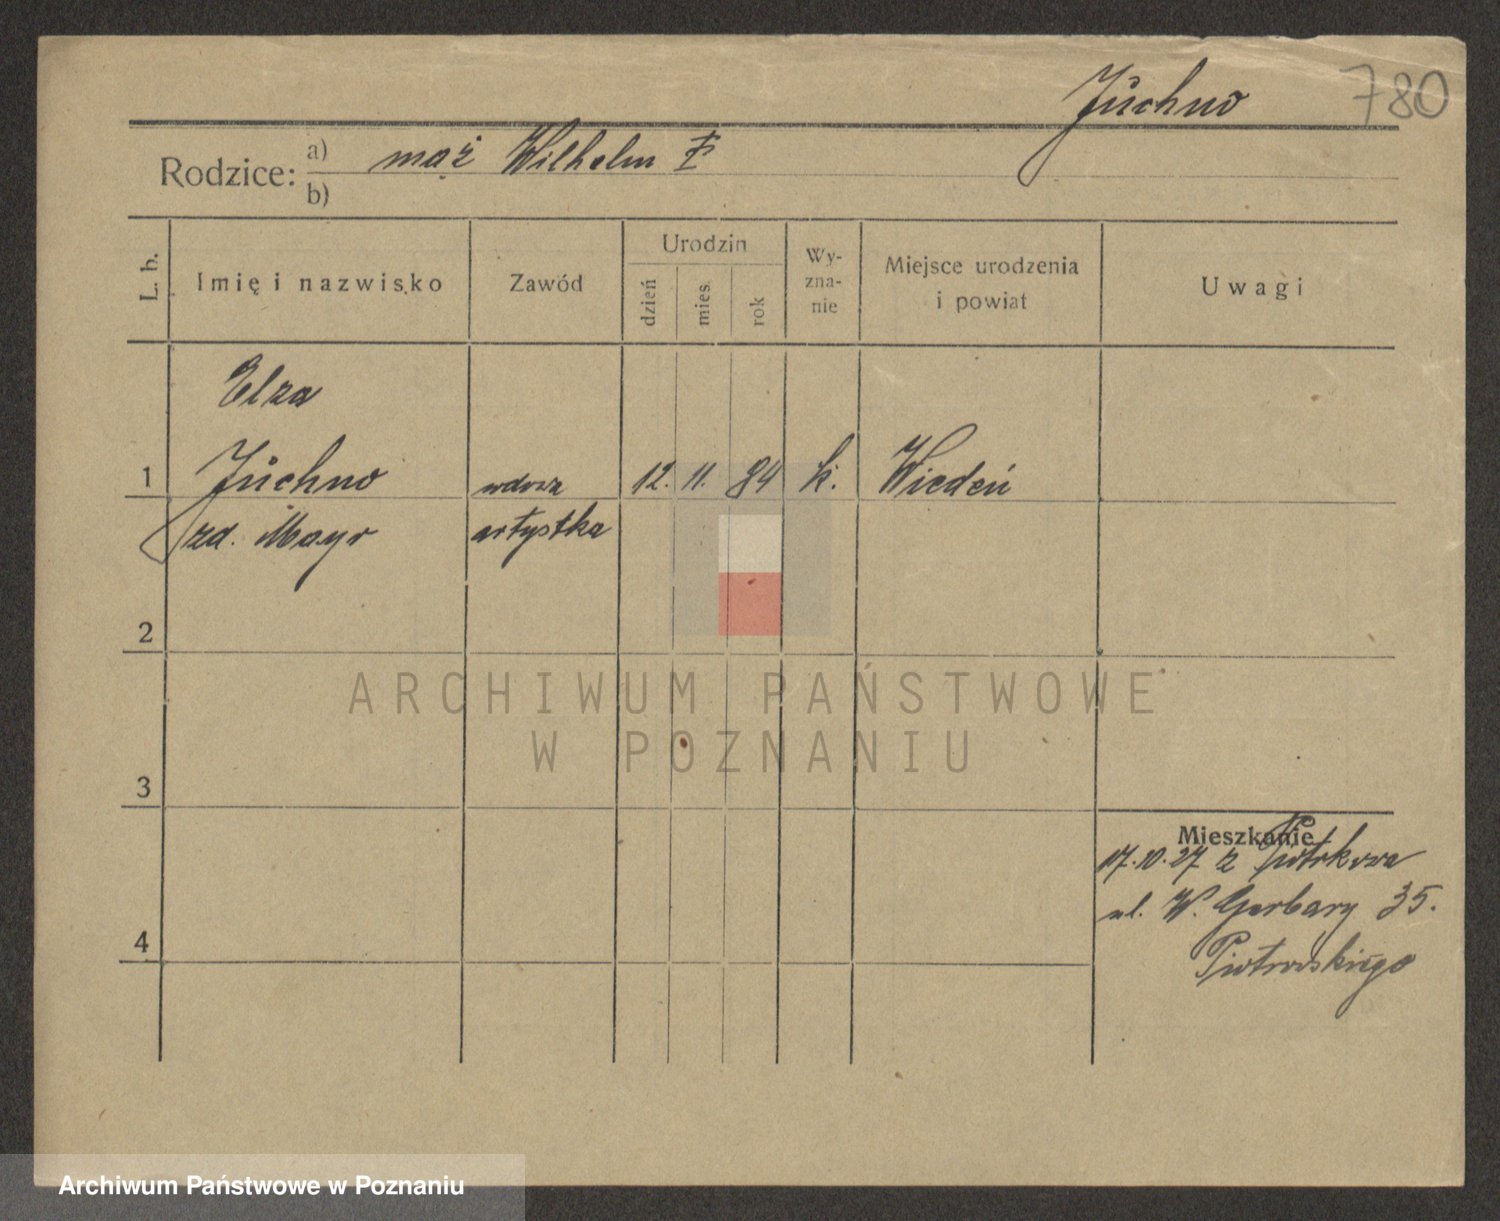 Juchno 780
Rodzice: a) mąż Wilhelm
b)
L. b.
Imię i nazwisko
Zawód
Urodzin
dzień
mies.
rok
Wy-
zna-
nie
Miejsce urodzenia
i powiat
Uwagi
Elza
1 Juchno wdowa 12. 11. 84 k. Wiedeń
zd. Mayr artystka
2
ARCHIWUM PAŃSTWOWE
W POZNANIU
3
Mieszkanie
17.10.27 z
ul. W. Garbary 35.
4 Piotrowskiego
Archiwum Państwowe w Poznaniu